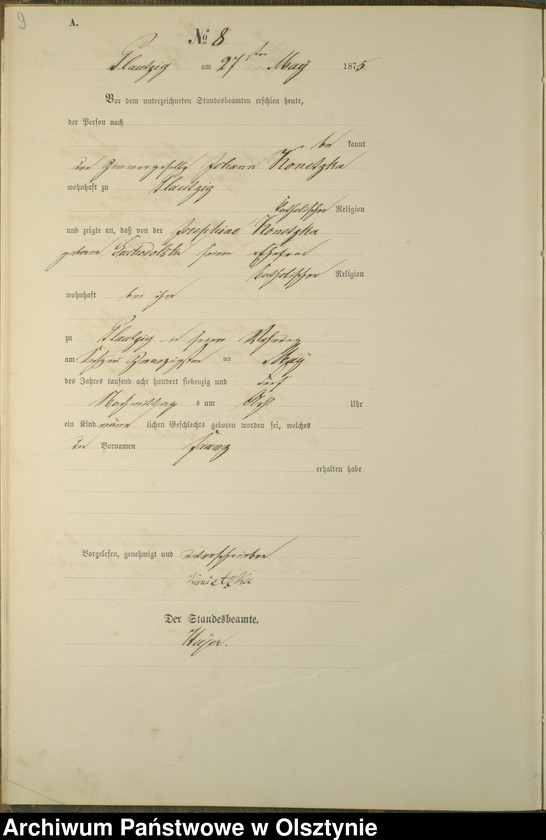 9
A.
№ 8
Plautzig am 27ten May 1875
Vor dem unterzeichneten Standesbeamten erschien heute,
der Person nach
be kannt
der Zimmergeselle Johann Konetzka
wohnhaft zu Plautzig
katholischer Religion
und zeigte an, daß von der Josephine Konetzka
geborne seiner Ehefrau
katholischer Religion
wohnhaft bei ihm
zu Plautzig in seiner Wohnung
am May
des Jahres tausend acht hundert siebenzig und fünf
Nachmittag s um Acht Uhr
ein Kind männ lichen Geschlechts geboren worden sei, welches
den Vornamen Franz
erhalten habe
Vorgelesen, genehmigt und unterschrieben
Der Standesbeamte.
Archiwum Państwowe w Olsztynie